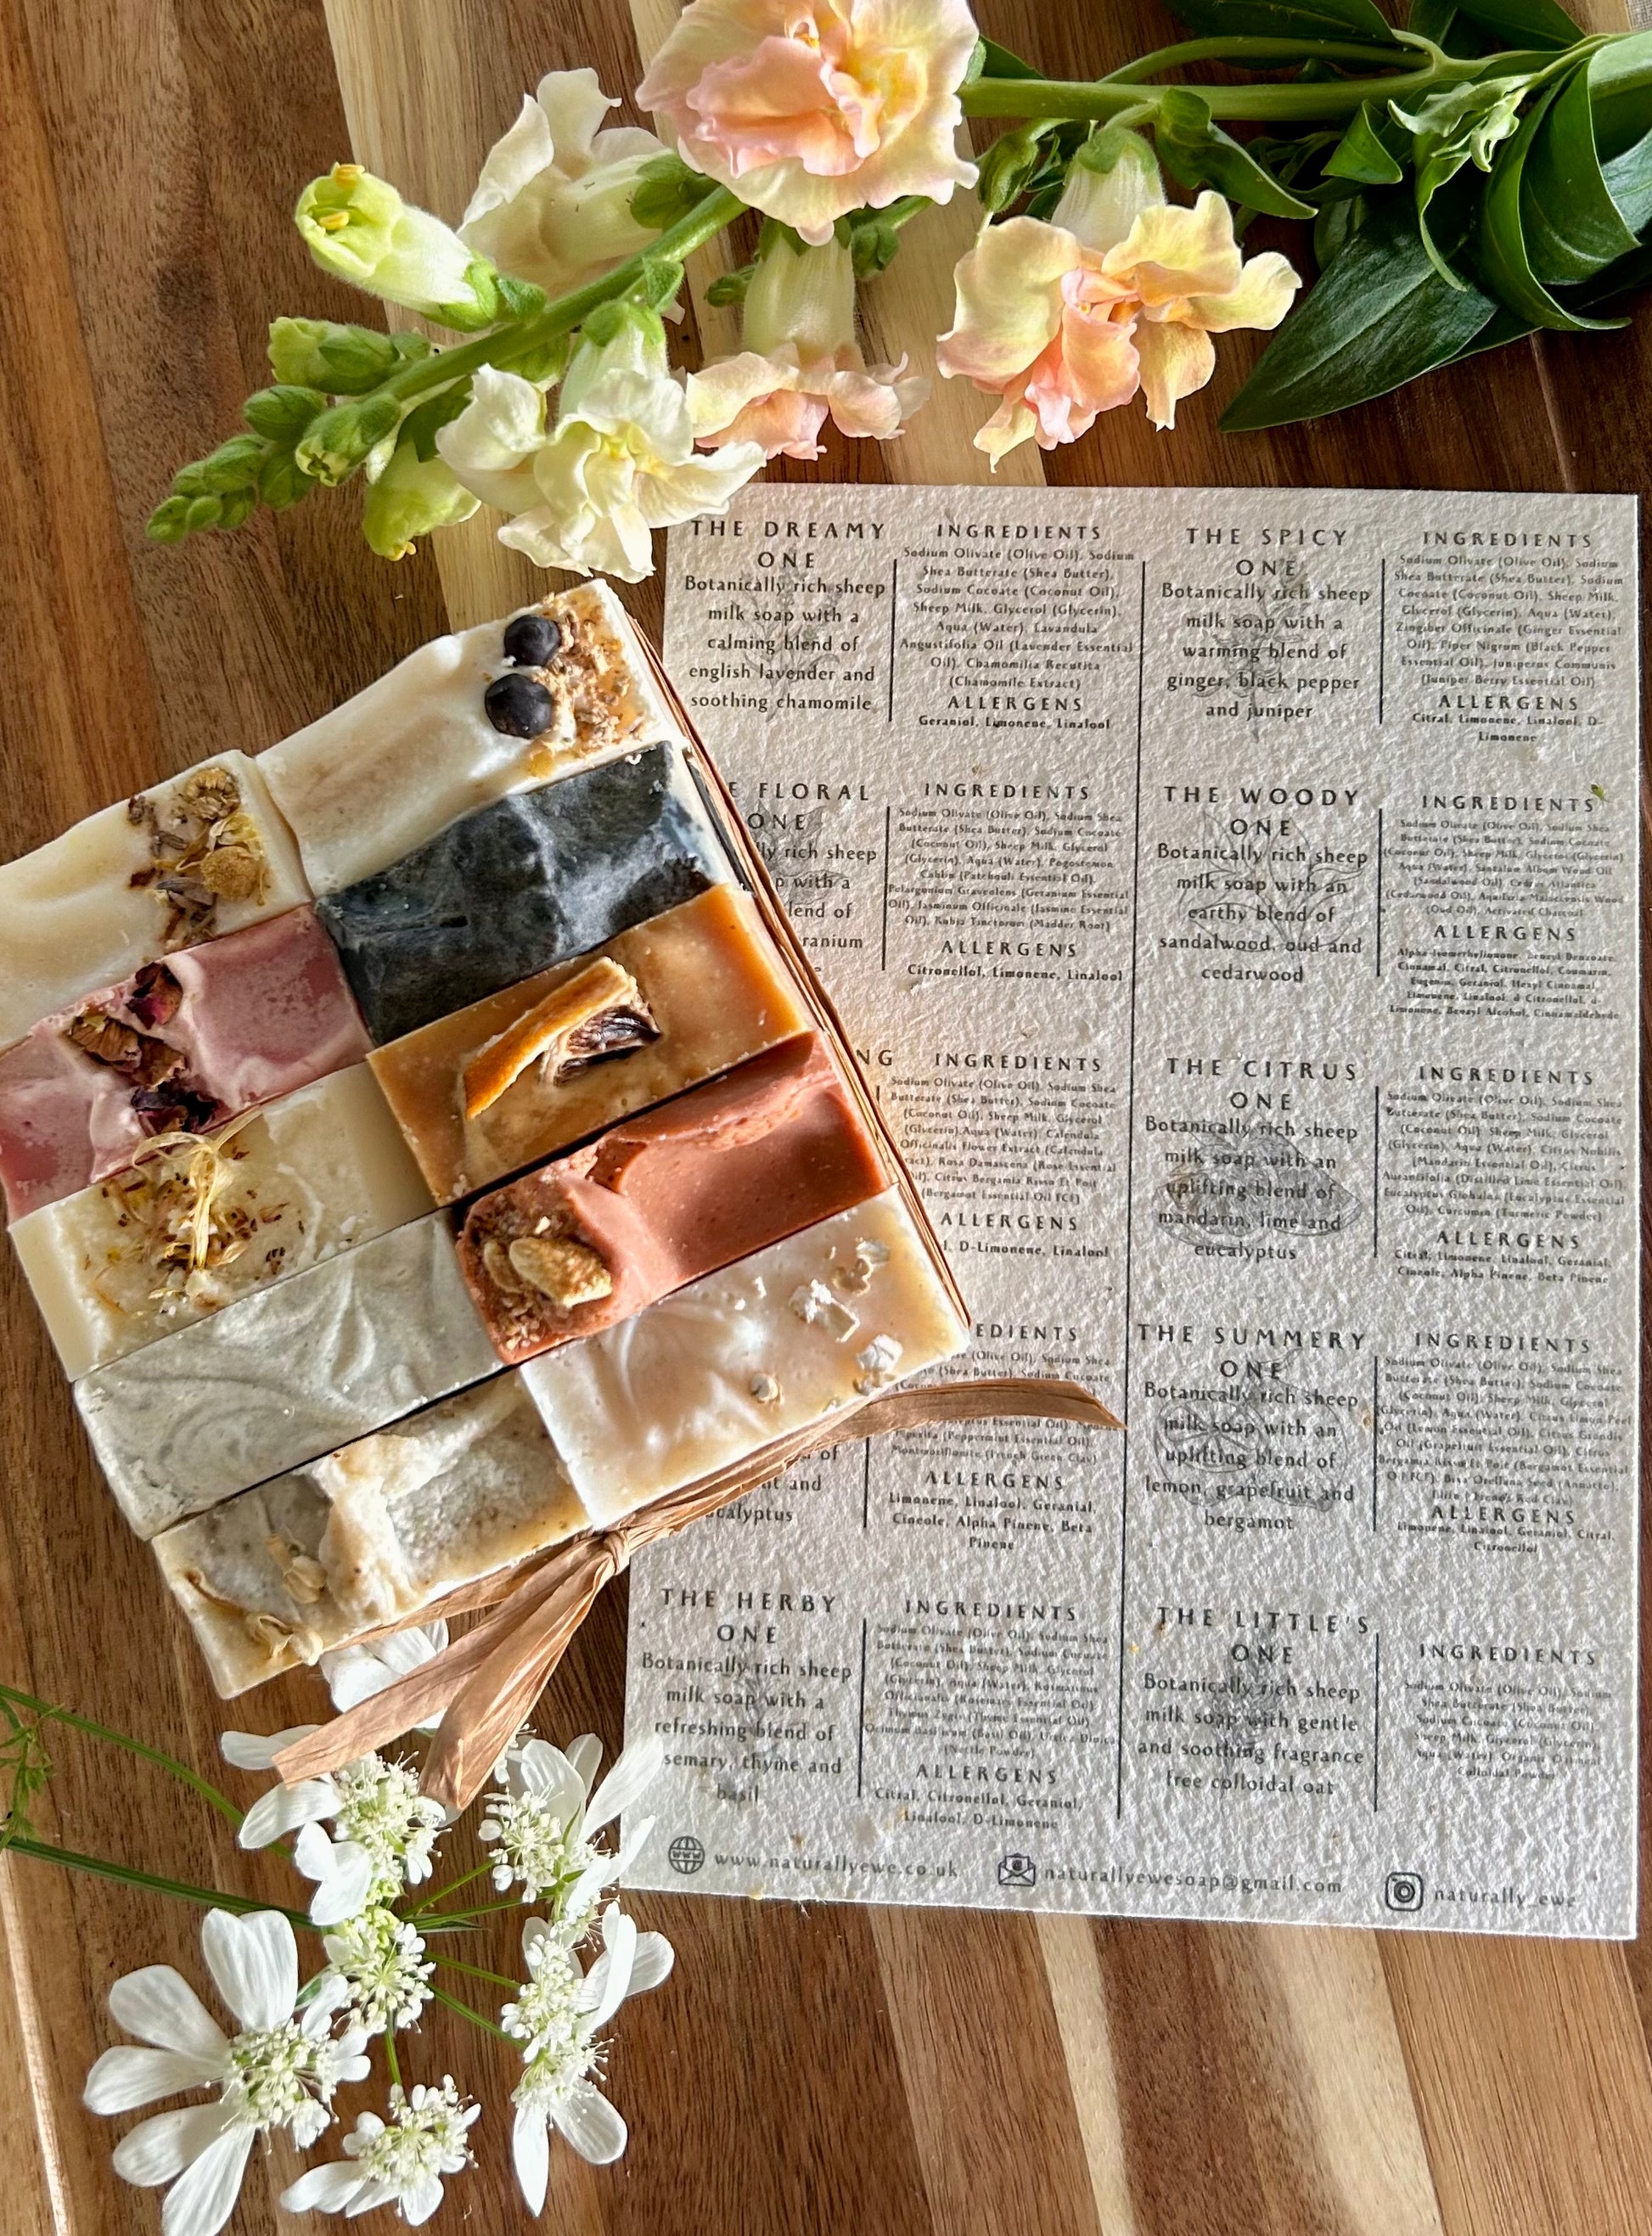 THE DREAMY
ONE
Botanically rich sheep
milk soap with a
calming blend of
english lavender and
soothing chamomile
INGREDIENTS
Sodium Olivate (Olive Oil), Sodium
Shea Butterate (Shea Butter),
Sodium Cocoate (Coconut Oil),
Sheep Milk, Glycerol (Glycerin),
Aqua (Water), Lavandula
Angustifolia Oil (Lavender Essential
Oil), Chamomilia Recutita
(Chamomile Extract)
ALLERGENS
Geraniol, Limonene, Linalool
THE SPICY
ONE
Botanically rich sheep
milk soap with a
warming blend of
ginger, black pepper
and juniper
INGREDIENTS
Sodium Olivate (Olive Oil), Sodium
Shea Butterate (Shea Butter), Sodium
Cocoate (Coconut Oil), Sheep Milk,
Glycerol (Glycerin), Aqua (Water),
Zingiber Officinale (Ginger Essential
Oil), Piper Nigrum (Black Pepper
Essential Oil), Juniperus Communis
(Juniper Berry Essential Oil)
ALLERGENS
Citral, Limonene, Linalool, D-
Limonene
E FLORAL
ONE
ly rich sheep
p with a
lend of
ranium
INGREDIENTS
Sodium Olivate (Olive Oil), Sodium Shea
Butterate (Shea Butter), Sodium Cocoate
(Coconut Oil), Sheep Milk, Glycerol
(Glycerin), Aqua (Water), Pogostemon
Cablin (Patchouli Essential Oil),
Pelargonium Graveolens (Geranium Essential
Oil), Jasminum Officinale (Jasmine Essential
Oil), Rubia Tinctorum (Madder Root)
ALLERGENS
Citronellol, Limonene, Linalool
THE WOODY
ONE
Botanically rich sheep
milk soap with an
earthy blend of
sandalwood, oud and
cedarwood
INGREDIENTS
Sodium Olivate (Olive Oil), Sodium Shea
Butterate (Shea Butter), Sodium Cocoate
(Coconut Oil), Sheep Milk, Glycerol (Glycerin)
Aqua (Water), Santalum Album Wood Oil
(Sandalwood Oil), Cedrus Atlantica
(Cedarwood Oil), Aquilaria Malaccensis Wood
(Oud Oil), Activated Charcoal
ALLERGENS
Benzyl Benzoate,
Cinnamal, Citral, Citronellol, Coumarin,
Eugenia, Geraniol, Hexyl Cinnamal,
Limonene, Linalool, d-Citronellol, d-
Limonene, Benzyl Alcohol, Cinnamaldehyde
NG
INGREDIENTS
Sodium Olivate (Olive Oil), Sodium Shea
Butterate (Shea Butter), Sodium Cocoate
(Coconut Oil), Sheep Milk, Glycerol
(Glycerin),Aqua (Water), Calendula
Officinalis Flower Extract (Calendula
ract), Rosa Damascena (Rose Essential
il), Citrus Bergamia Risso Et Poit
(Bergamot Essential Oil FCF)
ALLERGENS
l, D-Limonene, Linalool
THE CITRUS
ONE
Botanically rich sheep
milk soap with an
uplifting blend of
mandarin, lime and
eucalyptus
INGREDIENTS
Sodium Olivate (Olive Oil), Sodium Shea
Butterate (Shea Butter), Sodium Cocoate
(Coconut Oil), Sheep Milk, Glycerol
(Glycerin), Aqua (Water), Citrus Nobilis
(Mandarin Essential Oil), Citrus
Aurantifolia (Distilled Lime Essential Oil),
Eucalyptus Globulus (Eucalyptus Essential
Oil), Curcumin (Turmeric Powder)
ALLERGENS
Citral, Limonene, Linalool, Geranial,
Cineole, Alpha Pinene, Beta Pinene
EDIENTS
(Olive Oil), Sodium Shea
(Shea Butter), Sodium Cocoate
Essential Oil),
Piperita (Peppermint Essential Oil),
Montmorillonite (French Green Clay)
ALLERGENS
Limonene, Linalool, Geranial,
Cineole, Alpha Pinene, Beta
Pinene
of
nt and
calyptus
THE SUMMERY
ONE
Botanically rich sheep
milk soap with an
uplifting blend of
lemon, grapefruit and
bergamot
INGREDIENTS
Sodium Olivate (Olive Oil), Sodium Shea
Butterate (Shea Butter), Sodium Cocoate
(Coconut Oil), Sheep Milk, Glycerol
(Glycerin), Aqua (Water), Citrus Limon Peel
Oil (Lemon Essential Oil), Citrus Grandis
Oil (Grapefruit Essential Oil), Citrus
Bergamia Risso Et Poit (Bergamot Essential
Bixa Orellana Seed (Annatto),
Red Clay)
ALLERGENS
Limonene, Linalool, Geraniol, Citral,
Citronellol
THE HERBY
ONE
Botanically rich sheep
milk soap with a
refreshing blend of
semary, thyme and
basil
INGREDIENTS
Sodium Olivate (Olive Oil), Sodium Shea
Butterate (Shea Butter), Sodium Cocoate
(Coconut Oil), Sheep Milk, Glycerol
(Glycerin), Aqua (Water), Rosmarinus
Officinalis (Rosemary Essential Oil),
Thymus Zygis (Thyme Essential Oil),
Ocimum Basilicum (Basil Oil), Urtica Dioica
(Nettle Powder)
ALLERGENS
Citral, Citronellol, Geraniol,
Linalool, D-Limonene
THE LITTLE'S
ONE
Botanically rich sheep
milk soap with gentle
and soothing fragrance
free colloidal oat
INGREDIENTS
Sodium Olivate (Olive Oil), Sodium
Shea Butterate (Shea Butter),
Sodium Cocoate (Coconut Oil),
Sheep Milk, Glycerol (Glycerin),
Aqua (Water), Organic Oatmeal
Colloidal Powder
www.naturallyewe.co.uk
naturallyewesoap@gmail.com
naturally_ewe